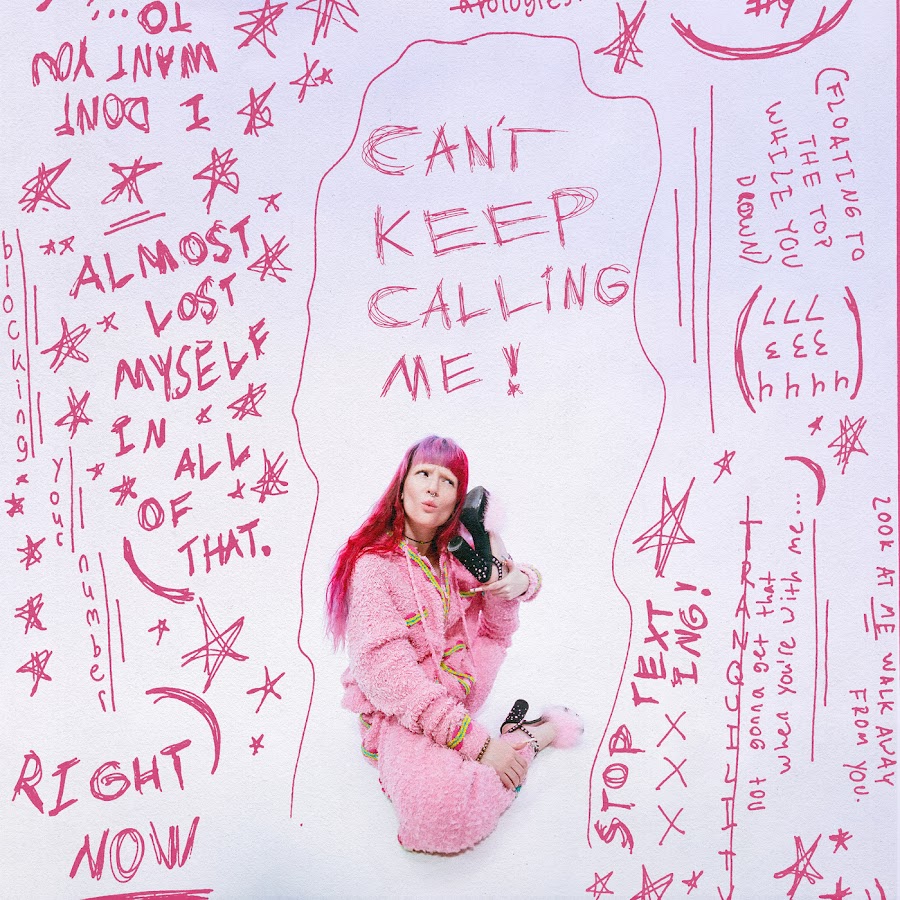 apologies.
I DONT
WANT YOU
TO...
CAN'T
KEEP
CALLING
ME!
ALMOST
LOST
MYSELF
IN
ALL
OF
THAT.
blocking
your
number
RIGHT
NOW
(FLOATING TO
THE TOP
WHILE YOU
DROWN)
444
333
777
STOP TEXT
ING!
XXX
not gonna get that
when you're with me...
LOOK AT ME WALK AWAY
FROM YOU.